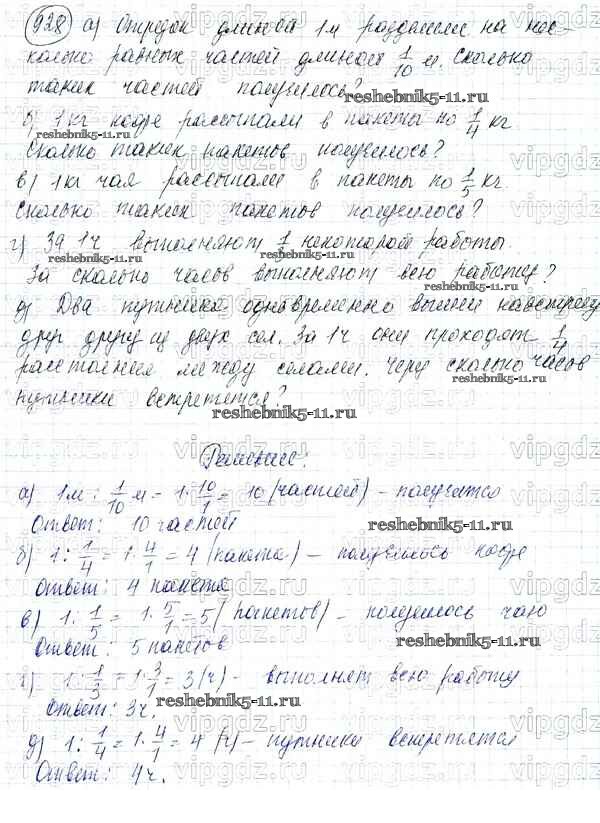 928 а) Отрезок длиной 1м разделили на нес-
колько равных частей длиной 1/10 м. Сколько
таких частей получилось?
reshebnik5-11.ru
б) 1 кг кофе рассыпали в пакеты по 1/4 кг
reshebnik5-11.ru
Сколько таких пакетов получилось?
в) 1 кг чая рассыпали в пакеты по 1/5 кг.
Сколько таких пакетов получилось?
г) За 1ч выполняют 1/3 некоторой работы.
reshebnik5-11.ru
За сколько часов выполняют всю работу?
д) Два путника одновременно вышли навстречу
друг другу из двух сел. За 1ч они проходят 1/4
расстояния между селами. Через сколько часов
reshebnik5-11.ru
путники встретятся?
reshebnik5-11.ru
Решение:
а) 1м : 1/10 м = 1·10/1 = 10 (частей) – получится
Ответ: 10 частей
reshebnik5-11.ru
б) 1: 1/4 = 1·4/1 = 4 (пакета) – получилось кофе
Ответ: 4 пакета
в) 1: 1/5 = 1·5/1 = 5 (пакетов) – получилось чаю
reshebnik5-11.ru
Ответ: 5 пакетов
г) 1: 1/3 = 1·3/1 = 3 (ч) – выполнят всю работу
reshebnik5-11.ru
Ответ: 3ч.
д) 1: 1/4 = 1·4/1 = 4 (ч) – путники встретятся
reshebnik5-11.ru
Ответ: 4ч.